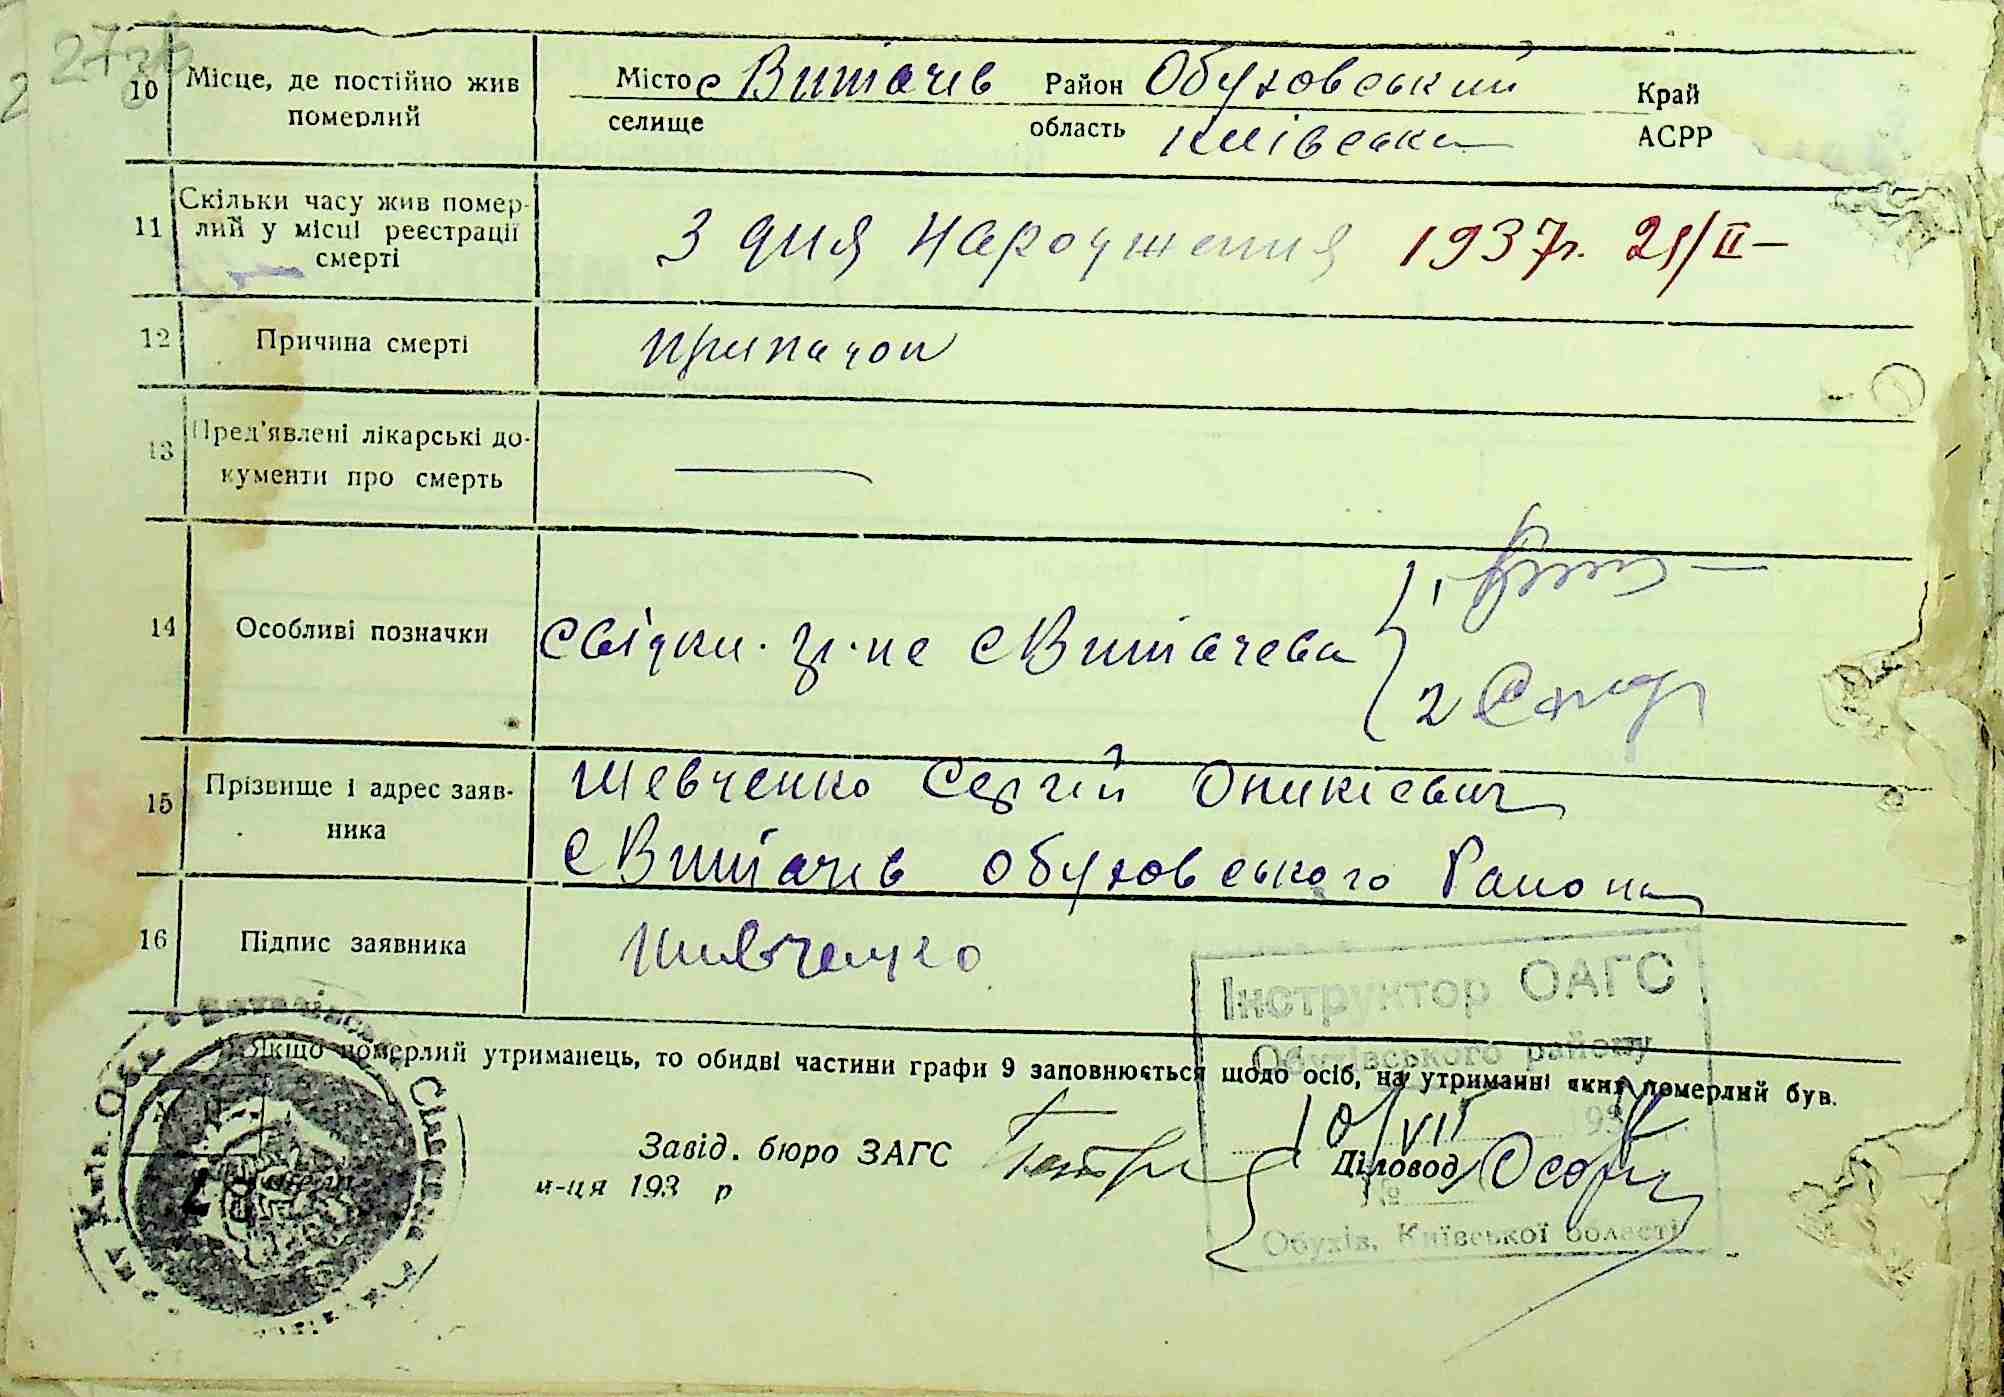 27зв
10 Місце, де постійно жив Місто с Витачів Район Обуховський Край
померлий селище область Київська АСРР
11 Скільки часу жив помер-
лий у місці реєстрації З дня народження 1937г. 21/II-
смерті
12 Причина смерті припадок
13 Пред'явлені лікарські до-
кументи про смерть
1
14 Особливі позначки Свідки. гр-не с Витачева
2
15 Прізвище і адрес заяв- Шевченко Сергій Оникієвич
ника с Витачів Обуховського Района
16 Підпис заявника Шевченко
Інструктор ОАГС
Якщо померлий утриманець, то обидві частини графи 9 заповнюється щодо осіб, на утриманні яких померлий був.
Обухівського району
10/VII 193
Завід. бюро ЗАГС Діловод
м-ця 193 р №
Обухів, Київської області